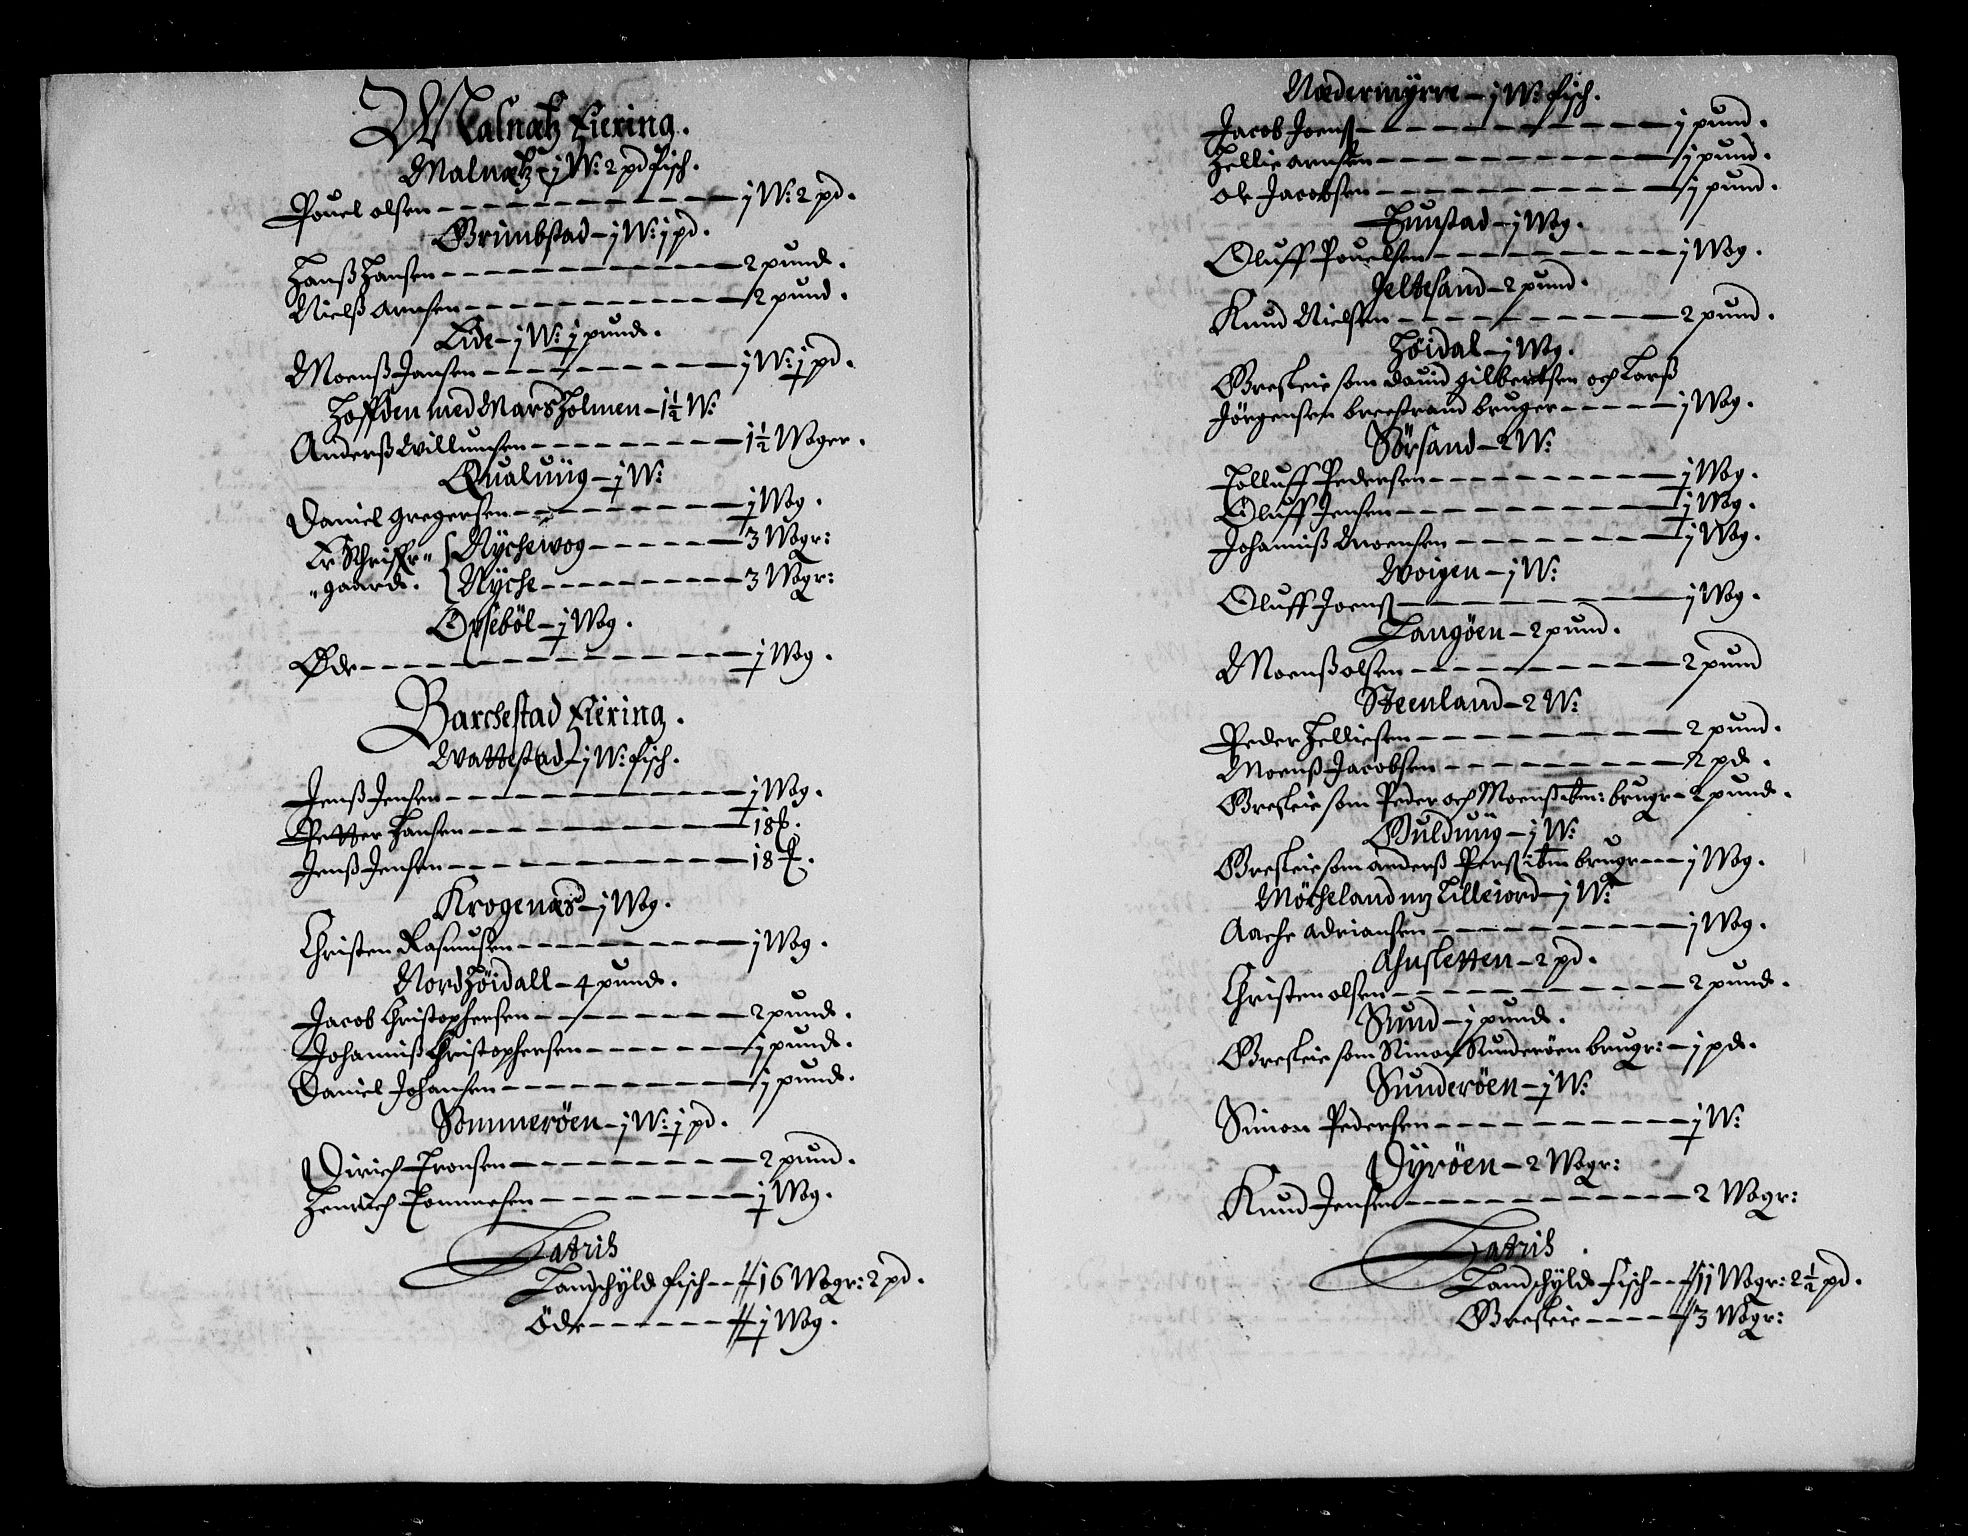 Malnætz Fiering.
Malnætz - j W: 2 pd fisch.
Pouel olsen - j W: 2 pd.
Grimbstad - j W: j pd.
Hanß Hansen - 2 pund.
Nielß Arnesen - 2 pund.
Lide - j W: j pund.
Moenß Jansen - j W: j pd.
Hoffden med Mars Holmen - 1½ W:
Anderß Willumsen - 1½ Woger.
Qualuiig - j W:
Daniel gregersen - j Wog.
Er Schrifr„ Nÿchewog - 3 Wogr:
„gaard. Nÿche - 3 Wogr:
Opseböl - j Wog.
Øde - j Wog.
Barchestad Fiering.
Wattestad - j W: fisch.
Jenß Jensen - j Wog.
Petter Hansen - 18 ℔.
Jenß Jensen - 18 ℔.
Krogenæs - j Wog.
Christen Rasmusen - j Wog.
Nord Höidall - 4 pund.
Jacob Christophersen - 2 pund.
Johanniß Christophersen - j pund.
Daniel Johansen - j pund.
Sommeröen - j W: j pd.
Dirich Tronsen - 2 pund.
Henrich Tommesen - j Wog.
Latris
Landschÿld fisch - 16 Wogr: 2 pd.
Öde - j Wog.
Nædermÿrre - j W: fisch.
Jacob Joenß - j pund.
Hellie arnsen - j pund.
ole Jacobsen - j pund.
Tunstad - j Wog.
Oluff Pouelsen - j Wog.
Jeltesand - 2 pund.
Knud Nielsen - 2 pund.
Höidal - j Wog.
Græsleie som dauid gilbertsen och Larß
Jörgensen breestrand bruger - j Wog.
Sörsand - 2 W:
Tolluff Pedersen - j Wog.
Oluff Jensen - j Wog.
Johanniß Moensen - j Wog.
Woigen - j W:
Oluff Joenß - j Wog.
Langöen - 2 pund.
Moenß olsen - 2 pund
Steenland - 2 W:
Peder Helliesen - 2 pund.
Moenß Jacobsen - 2 pd.
Græsleie som Peder och Moenß ibm: brugr - 2 pund.
Guldüig - j W:
Græsleie som anderß Perß ibm brugr - j Wog.
Möcheland og Lilleiord - j W:
Aache Adriansen - j Wog.
Ahusletten - 2 pd.
Christen olsen - 2 pund.
Sund - j pund.
Græsleie som Simon Sunderöen brugr: - j pd.
Sunderöen - j W:
Simon Pedersen - j W:
Dÿröen - 2 Wogr:
Knud Jensen - 2 Wogr:
Latris.
Landschÿld fisch - 11 Wogr: 2½ pd.
Græsleie - 3 Wogr: